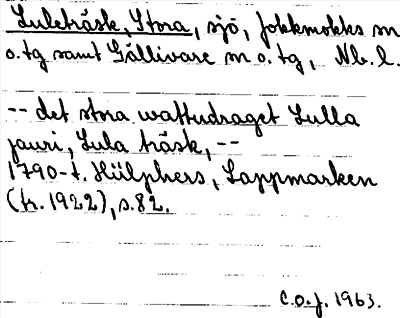 Luleträsk, Stora, sjö, Jokkmokks sn
o. tg samt Gällivare sn o. tg, Nb. l.
-- det stora wattudraget Lulla
jauri, Lula träsk, --
1790-t. Hülphers, Lappmarken
(tr. 1922), s. 82.
C.O.J. 1963.